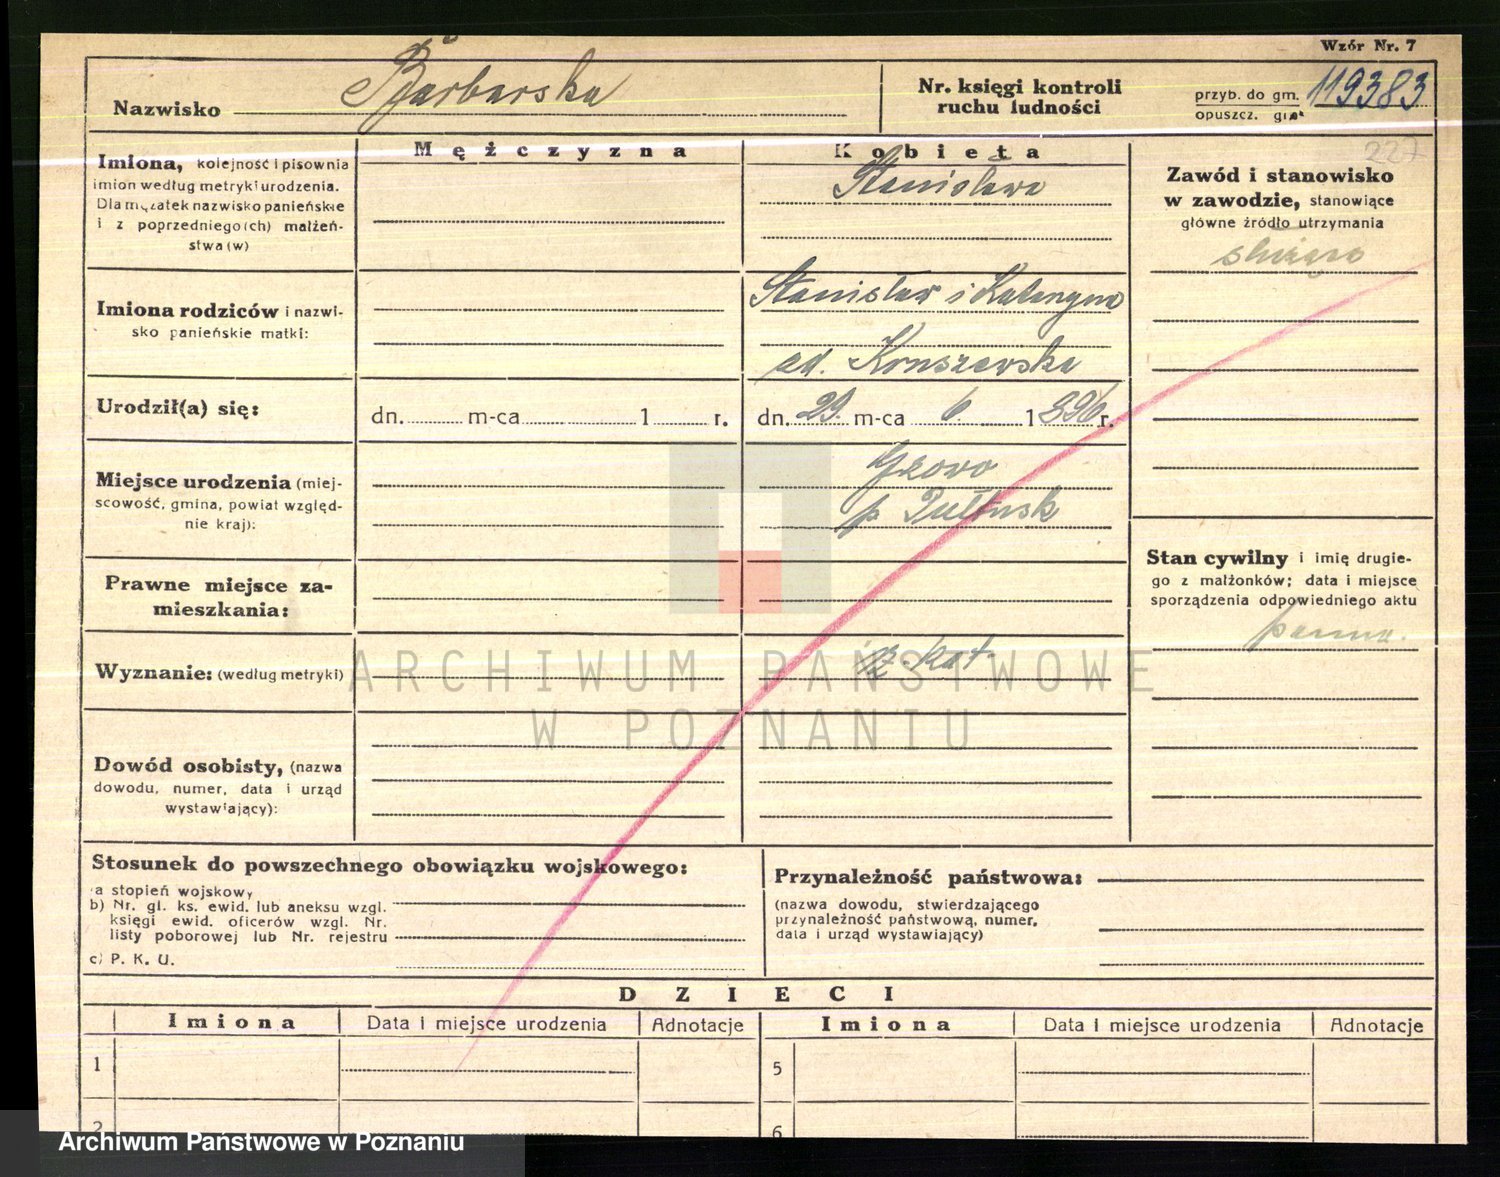 Wzór Nr. 7
Nazwisko Barbarska
Nr. księgi kontroli
ruchu ludności
przyb. do gm. 119383
opuszcz. gm.
227
Mężczyzna
Kobieta
Imiona, kolejność i pisownia
imion według metryki urodzenia.
Dla mężatek nazwisko panieńskie
i z poprzedniego(ch) małżeń-
stwa(w)
Stanisława
Zawód i stanowisko
w zawodzie, stanowiące
główne źródło utrzymania
służąca
Imiona rodziców i nazwi-
sko panieńskie matki:
Stanisław i Katarzyna
zd. Kruszewska
Urodził(a) się:
dn. m-ca 1 r.
dn. 29. m-ca 6 1896 r.
Miejsce urodzenia (miej-
scowość, gmina, powiat względ-
nie kraj):
Gzowo
p. Pułtusk
Stan cywilny i imię drugie-
go z małżonków; data i miejsce
sporządzenia odpowiedniego aktu
panna.
Prawne miejsce za-
mieszkania:
Wyznanie: (według metryki)
rz. kat.
Dowód osobisty, (nazwa
dowodu, numer, data i urząd
wystawiający):
Stosunek do powszechnego obowiązku wojskowego:
a stopień wojskowy
b) Nr. gl. ks. ewid. lub aneksu wzgl.
księgi ewid. oficerów wzgl. Nr.
listy poborowej lub Nr. rejestru
c) P. K. U.
Przynależność państwowa:
(nazwa dowodu, stwierdzającego
przynależność państwową, numer,
data i urząd wystawiający)
DZIECI
Imiona Data i miejsce urodzenia Adnotacje Imiona Data i miejsce urodzenia Adnotacje
1 5
2 6
ARCHIWUM PAŃSTWOWE
W POZNANIU
Archiwum Państwowe w Poznaniu